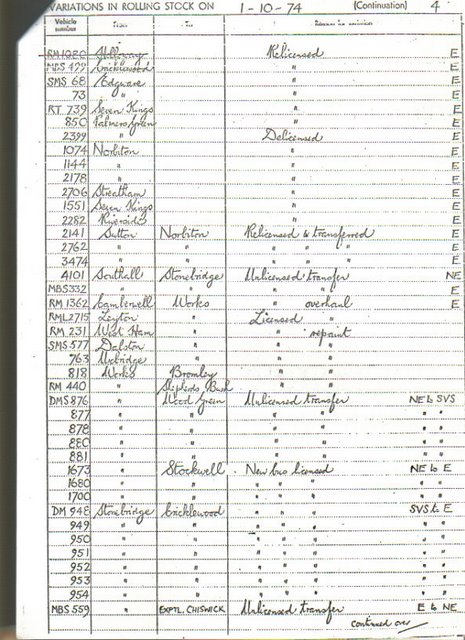 VARIATIONS IN ROLLING STOCK ON 1-10-74 (Continuation) 4
Vehicle number From To Reason for variation
Holloway Relicensed E
MBS 499 Cricklewood " E
SMS 68 Edgware " E
73 " " E
RT 739 Seven Kings " E
850 Palmers Green " E
2399 " Delicensed E
1074 Norbiton " E
1144 " " E
2178 " " E
2706 Streatham " E
1551 Seven Kings " E
2282 Riverside " E
2141 Sutton Norbiton Relicensed & transferred E
2762 " " " " " E
3474 " " " " " E
4101 Southall Stonebridge Unlicensed transfer NE
MBS 332 " " " " E
RM 1362 Camberwell Works " overhaul E
RML 2715 Leyton " Licensed "
RM 231 West Ham " " repaint
SMS 577 Dalston " " "
763 Uxbridge " " "
818 Works Bromley " "
RM 440 " Shepherds Bush " "
DMS 876 " Wood Green Unlicensed transfer NE to SVS
877 " " " " " "
878 " " " " " "
880 " " " " " "
881 " " " " " "
1673 " Stockwell New bus licensed NE to E
1680 " " " " " " "
1700 " " " " " " "
DM 948 Stonebridge Cricklewood " " " SVS to E
949 " " " " " " "
950 " " " " " " "
951 " " " " " " "
952 " " " " " " "
953 " " " " " " "
954 " " " " " " "
MBS 559 " EXPTL. CHISWICK Unlicensed transfer E to NE
continued over